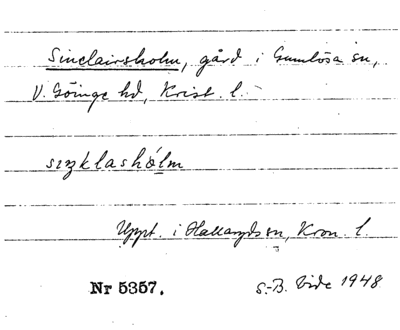 Sinclairsholm, gård i Gumlösa sn,
V. Göinge hd, Krist. l.
sıŋklashólm
Uppt. i Hallaryds sn, Kron. l.
Nr 5357. S.-B. Vide 1948